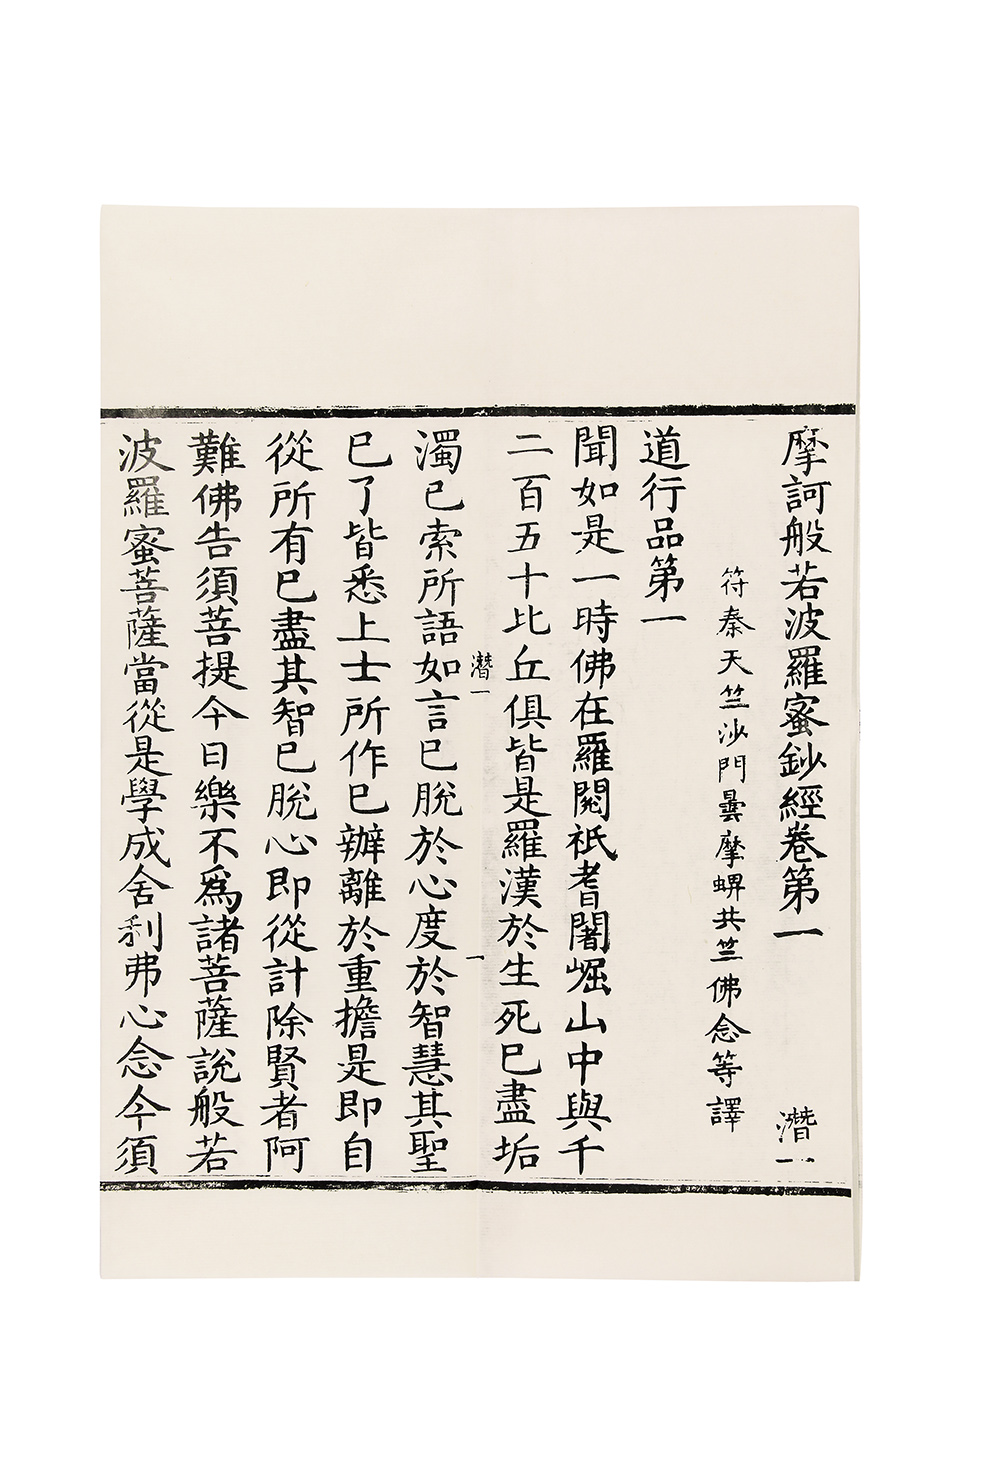 摩訶般若波羅蜜鈔經卷第一 潛一
符秦天竺沙門曇摩蜱共竺佛念等譯
道行品第一
聞如是一時佛在羅閱祇耆闍崛山中與千
二百五十比丘俱皆是羅漢於生死已盡垢
潛一 一
濁已索所語如言已脫於心度於智慧其聖
已了皆悉上士所作已辦離於重擔是即自
從所有已盡其智已脫心即從計除賢者阿
難佛告須菩提今日樂不爲諸菩薩說般若
波羅蜜菩薩當從是學成舍利弗心念今須